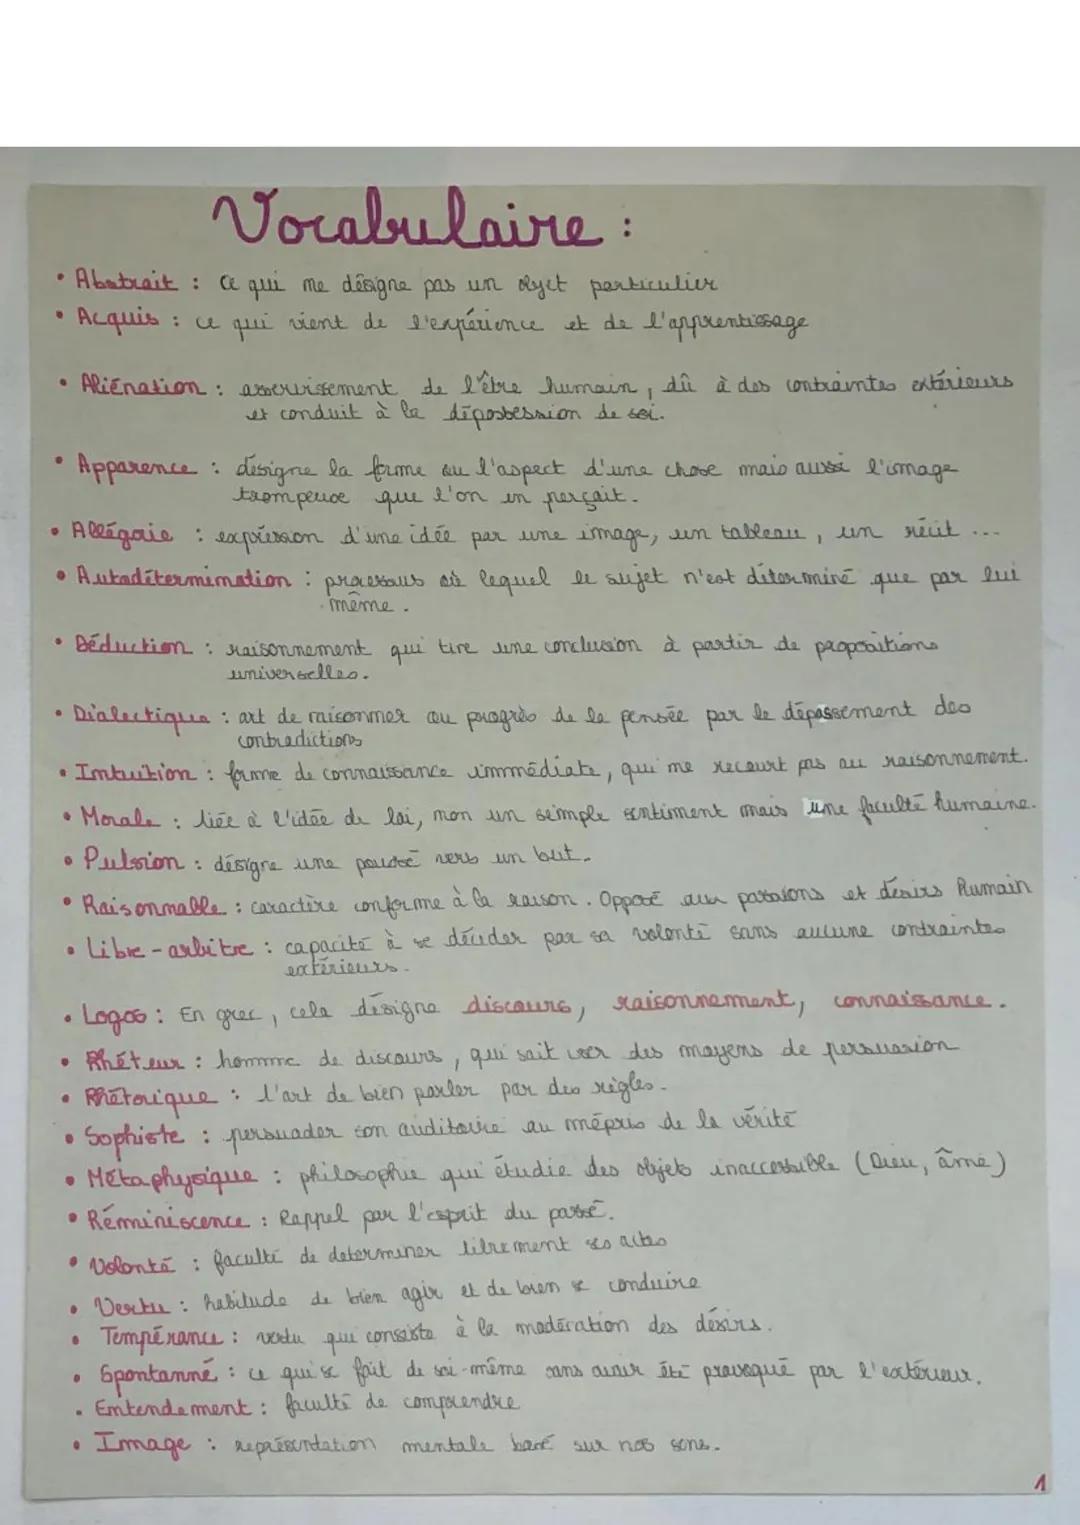 Vocabulaire :
• Abstrait : ce qui ne désigne pas un objet particulier
• Acquis : ce qui vient de l'expérience et de l'apprentissage
• Aliénation : asservissement de l'être humain, dû à des contraintes extérieurs
et conduit à la dépossession de soi.
• Apparence : désigne la forme ou l'aspect d'une chose mais aussi l'image
trompeuse que l'on en perçait.
• Allégorie : expression d'une idée par une image, un tableau, un récit ...
• Autodétermination : processus où lequel le sujet n'est déterminé que par lui
même.
• Déduction : raisonnement qui tire une conclusion à partir de propositions
universelles.
• Dialectique : art de raisonner ou progrès de la pensée par le dépassement des
contradictions
• Intuition : forme de connaissance immédiate, qui ne recourt pas au raisonnement.
• Morale : liée à l'idée de loi, non un seimple sentiment mais une faculté humaine.
• Pulsion : désigne une poussé vers un but.
• Raisonnable : caractère conforme à la raison. Opposé aux passions et désirs humain
• Libre-arbitre : capacité à se décider par sa volonté sans aucune contraintes
extérieurs.
• Logos : En grec, cela désigne discours, raisonnement, connaissance.
• Rhéteur : homme de discours, qui sait user des moyens de persuasion
• Rhétorique : l'art de bien parler par des règles.
• Sophiste : persuader son auditoire au mépris de la vérité
• Métaphysique : philosophie qui étudie des objets inaccessible (Dieu, âme)
• Réminiscence : Rappel par l'esprit du passé.
• Volonté : faculté de determiner librement ses actes
• Vertu : habitude de bien agir et de bien se conduire
• Tempérance : vertu qui consiste à la modération des désirs.
• Spontanné : ce qui se fait de soi-même sans avoir été provoqué par l'extérieur.
• Entendement : faculté de comprendre
• Image : représentation mentale basé sur nos sens.
1